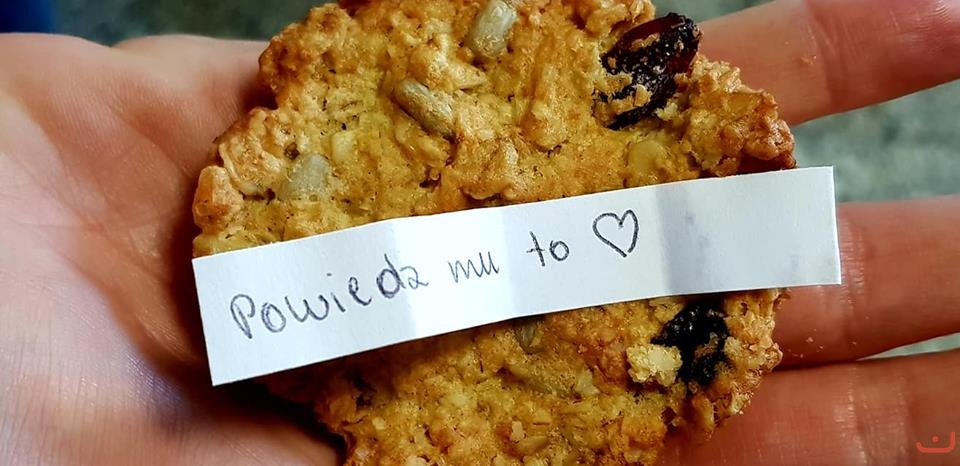 Powiedz mu to ♡